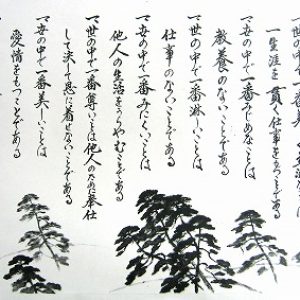 一生涯を貫く仕事をもつことである
一、世の中で一番みじめなことは
教養のないことである
一、世の中で一番淋しいことは
仕事のないことである
一、世の中で一番みにくいことは
他人の生活をうらやむことである
一、世の中で一番尊いことは他人のために奉仕
して決して恩に着せないことである
一、世の中で一番美しいことは
愛情をもつことである